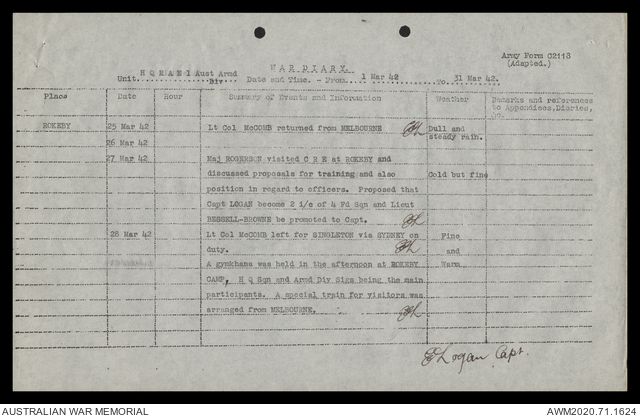 Army Form C2118
(Adapted.)
WAR DIARY.
Unit H Q R A E 1 Aust Armd Div. Date and Time. - From 1 Mar 42 To 31 Mar 42.
Place Date Hour Summary of Events and Information Weather Remarks and references to Appendices, Diaries, &c.
ROKEBY 25 Mar 42 Lt Col McCOMB returned from MELBOURNE Dull and
steady rain.
26 Mar 42
27 Mar 42 Maj ROGERSON visited C R E at ROKEBY and
discussed proposals for training and also Cold but fine
position in regard to officers. Proposed that
Capt LOGAN become 2 i/c of 4 Fd Sqn and Lieut
BESSELL-BROWNE be promoted to Capt.
28 Mar 42 Lt Col McCOMB left for SINGLETON via SYDNEY on Fine
duty. and
A gymkhana was held in the afternoon at ROKEBY Warm
CAMP, H Q Sqn and Armd Div Sigs being the main
participants. A special train for visitors was
arranged from MELBOURNE.
Logan Capt.
AUSTRALIAN WAR MEMORIAL AWM2020.71.1624